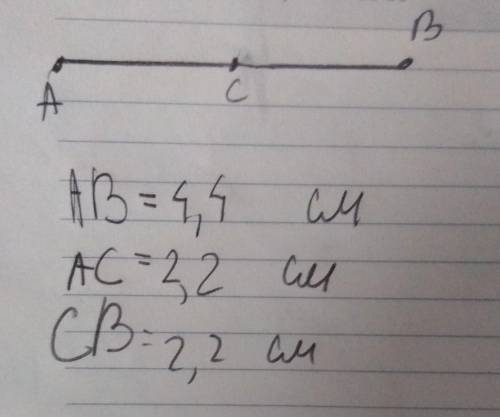 B
A C
AB = 4,4 см
AC = 2,2 см
CB = 2,2 см